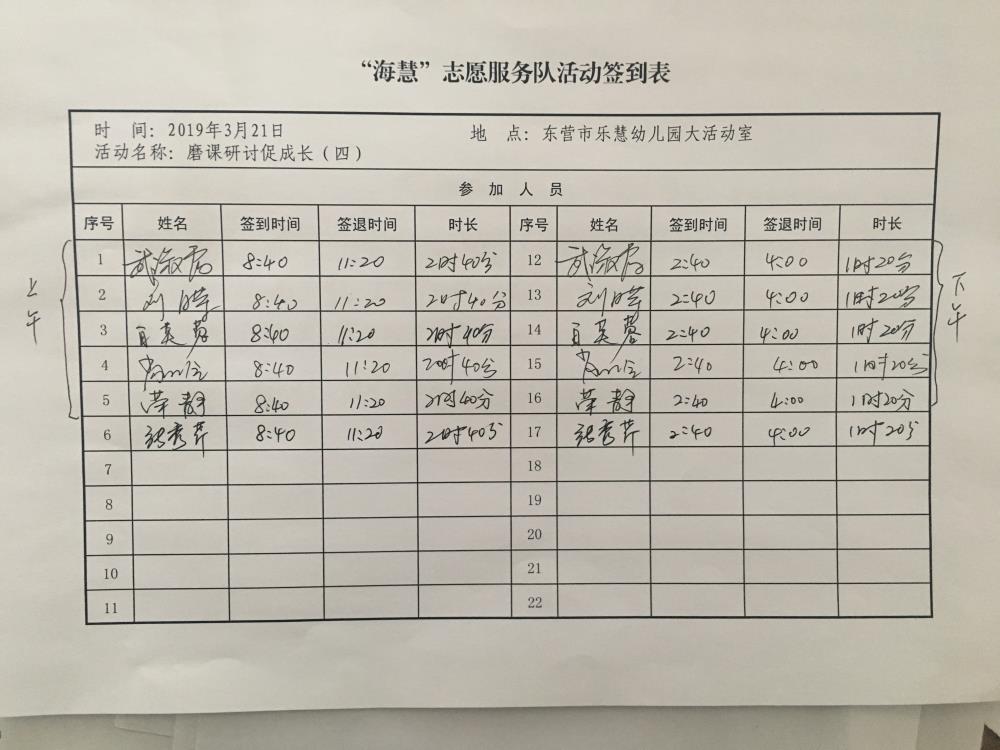 “海慧”志愿服务队活动签到表
时 间：2019年3月21日 地 点：东营市乐慧幼儿园大活动室
活动名称：磨课研讨促成长（四）
参 加 人 员
序号 姓名 签到时间 签退时间 时长 序号 姓名 签到时间 签退时间 时长
上午
下午
1 8:40 11:20 2时40分 12 2:40 4:00 1时20分
2 刘 8:40 11:20 2时40分 13 刘 2:40 4:00 1时20分
3 8:40 11:20 2时40分 14 2:40 4:00 1时20分
4 8:40 11:20 2时40分 15 2:40 4:00 1时20分
5 荣静 8:40 11:20 2时40分 16 荣静 2:40 4:00 1时20分
6 张秀芹 8:40 11:20 2时40分 17 张秀芹 2:40 4:00 1时20分
7 18
8 19
9 20
10 21
11 22